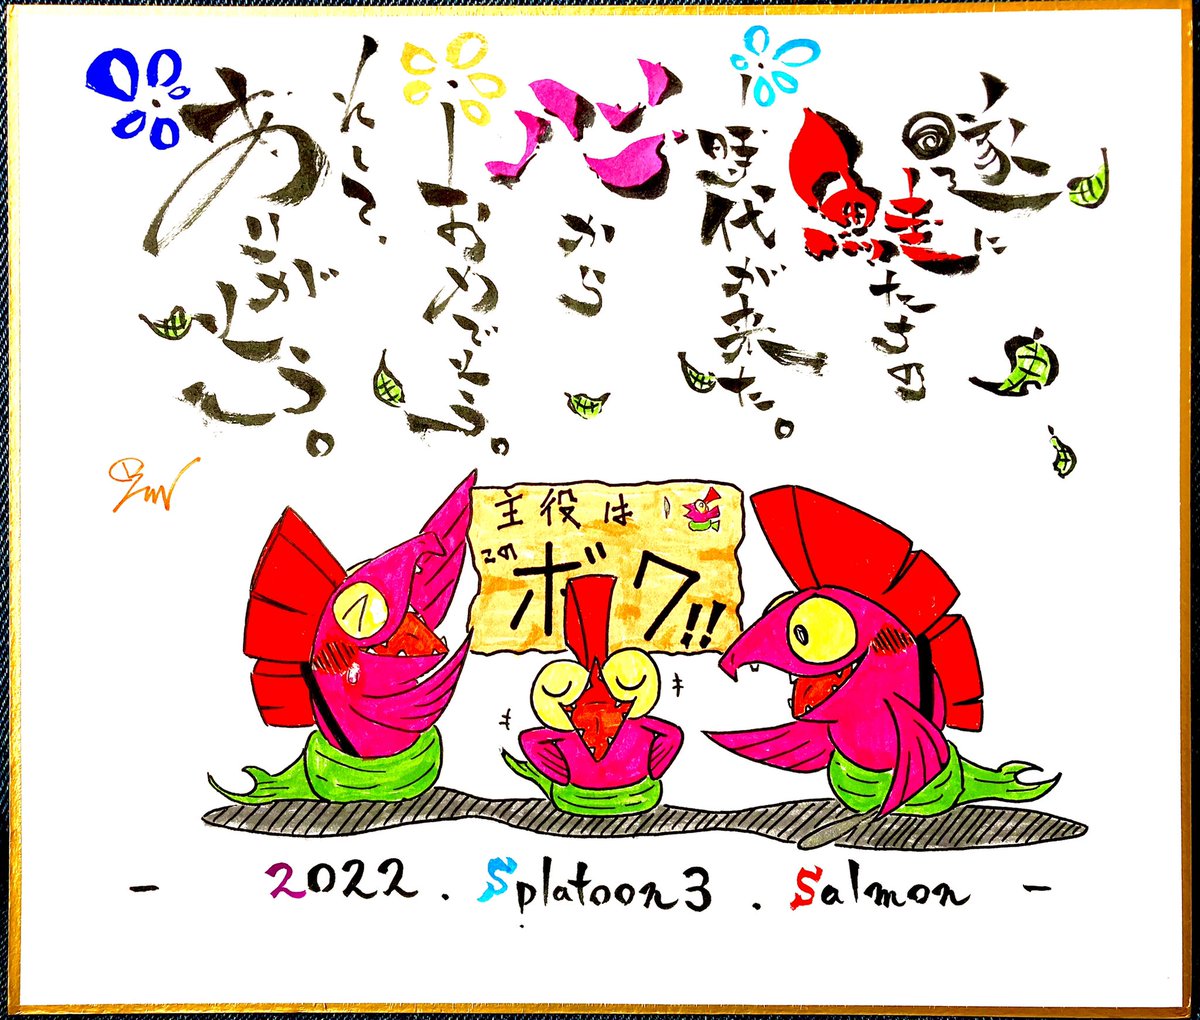 遂に
鮭たちの
時代が来た。
心から
おめでとう。
そして、
ありがとう。
主役は
この
ボク!!
- 2022 . Splatoon3 . Salmon -